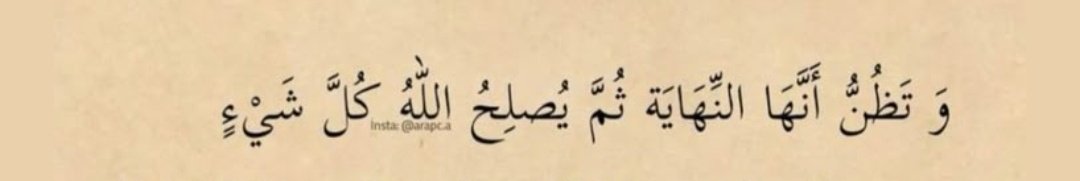 وَ تَظُنُّ أَنَّهَا النِّهَايَة ثُمَّ يُصلِحُ اللّٰهُ كُلَّ شَيْءٍ
Insta: @arapc.a